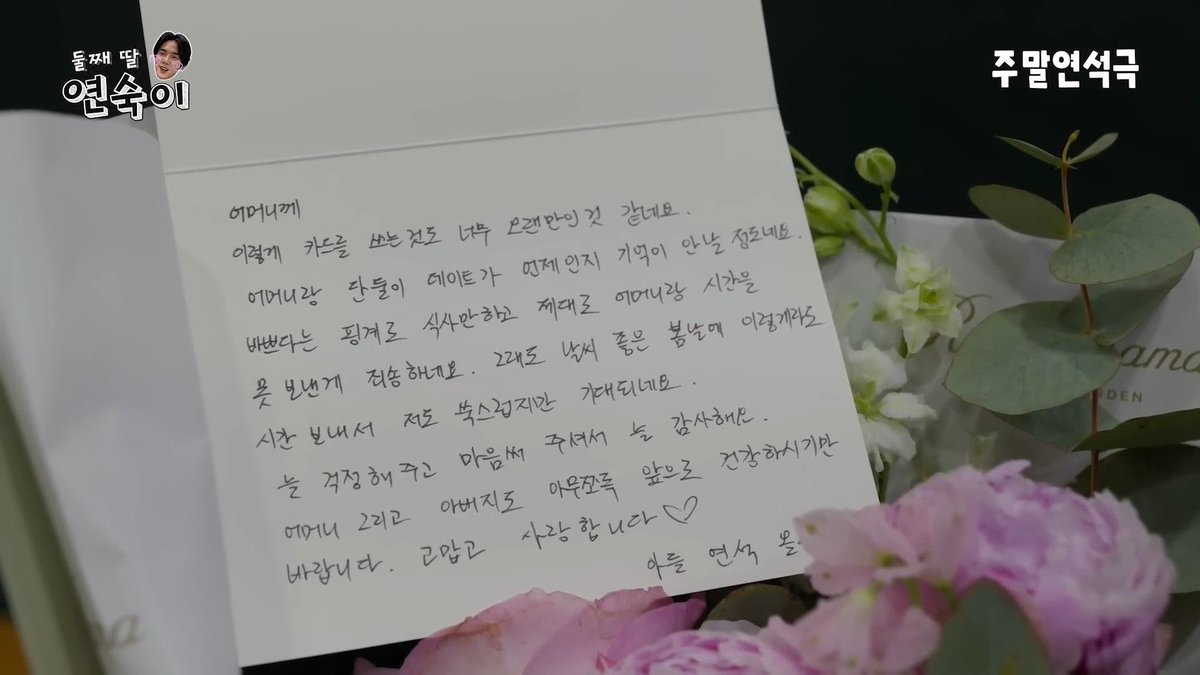 둘째 딸
연숙이
주말연석극
어머니께
이렇게 카드를 쓰는것도 너무 오랜만인것 같네요.
어머니랑 단둘이 데이트가 언제인지 기억이 안날 정도네요.
바쁘다는 핑계로 식사만하고 제대로 어머니랑 시간을
못 보낸게 죄송하네요. 그래도 날씨 좋은 봄날에 이렇게라도
시간 보내서 저도 쑥스럽지만 기대되네요.
늘 걱정해주고 마음써 주셔서 늘 감사해요.
어머니 그리고 아버지도 아무쪼록 앞으로 건강하시기만
바랍니다. 고맙고 사랑합니다♡
아들 연석 올
ama
RDEN